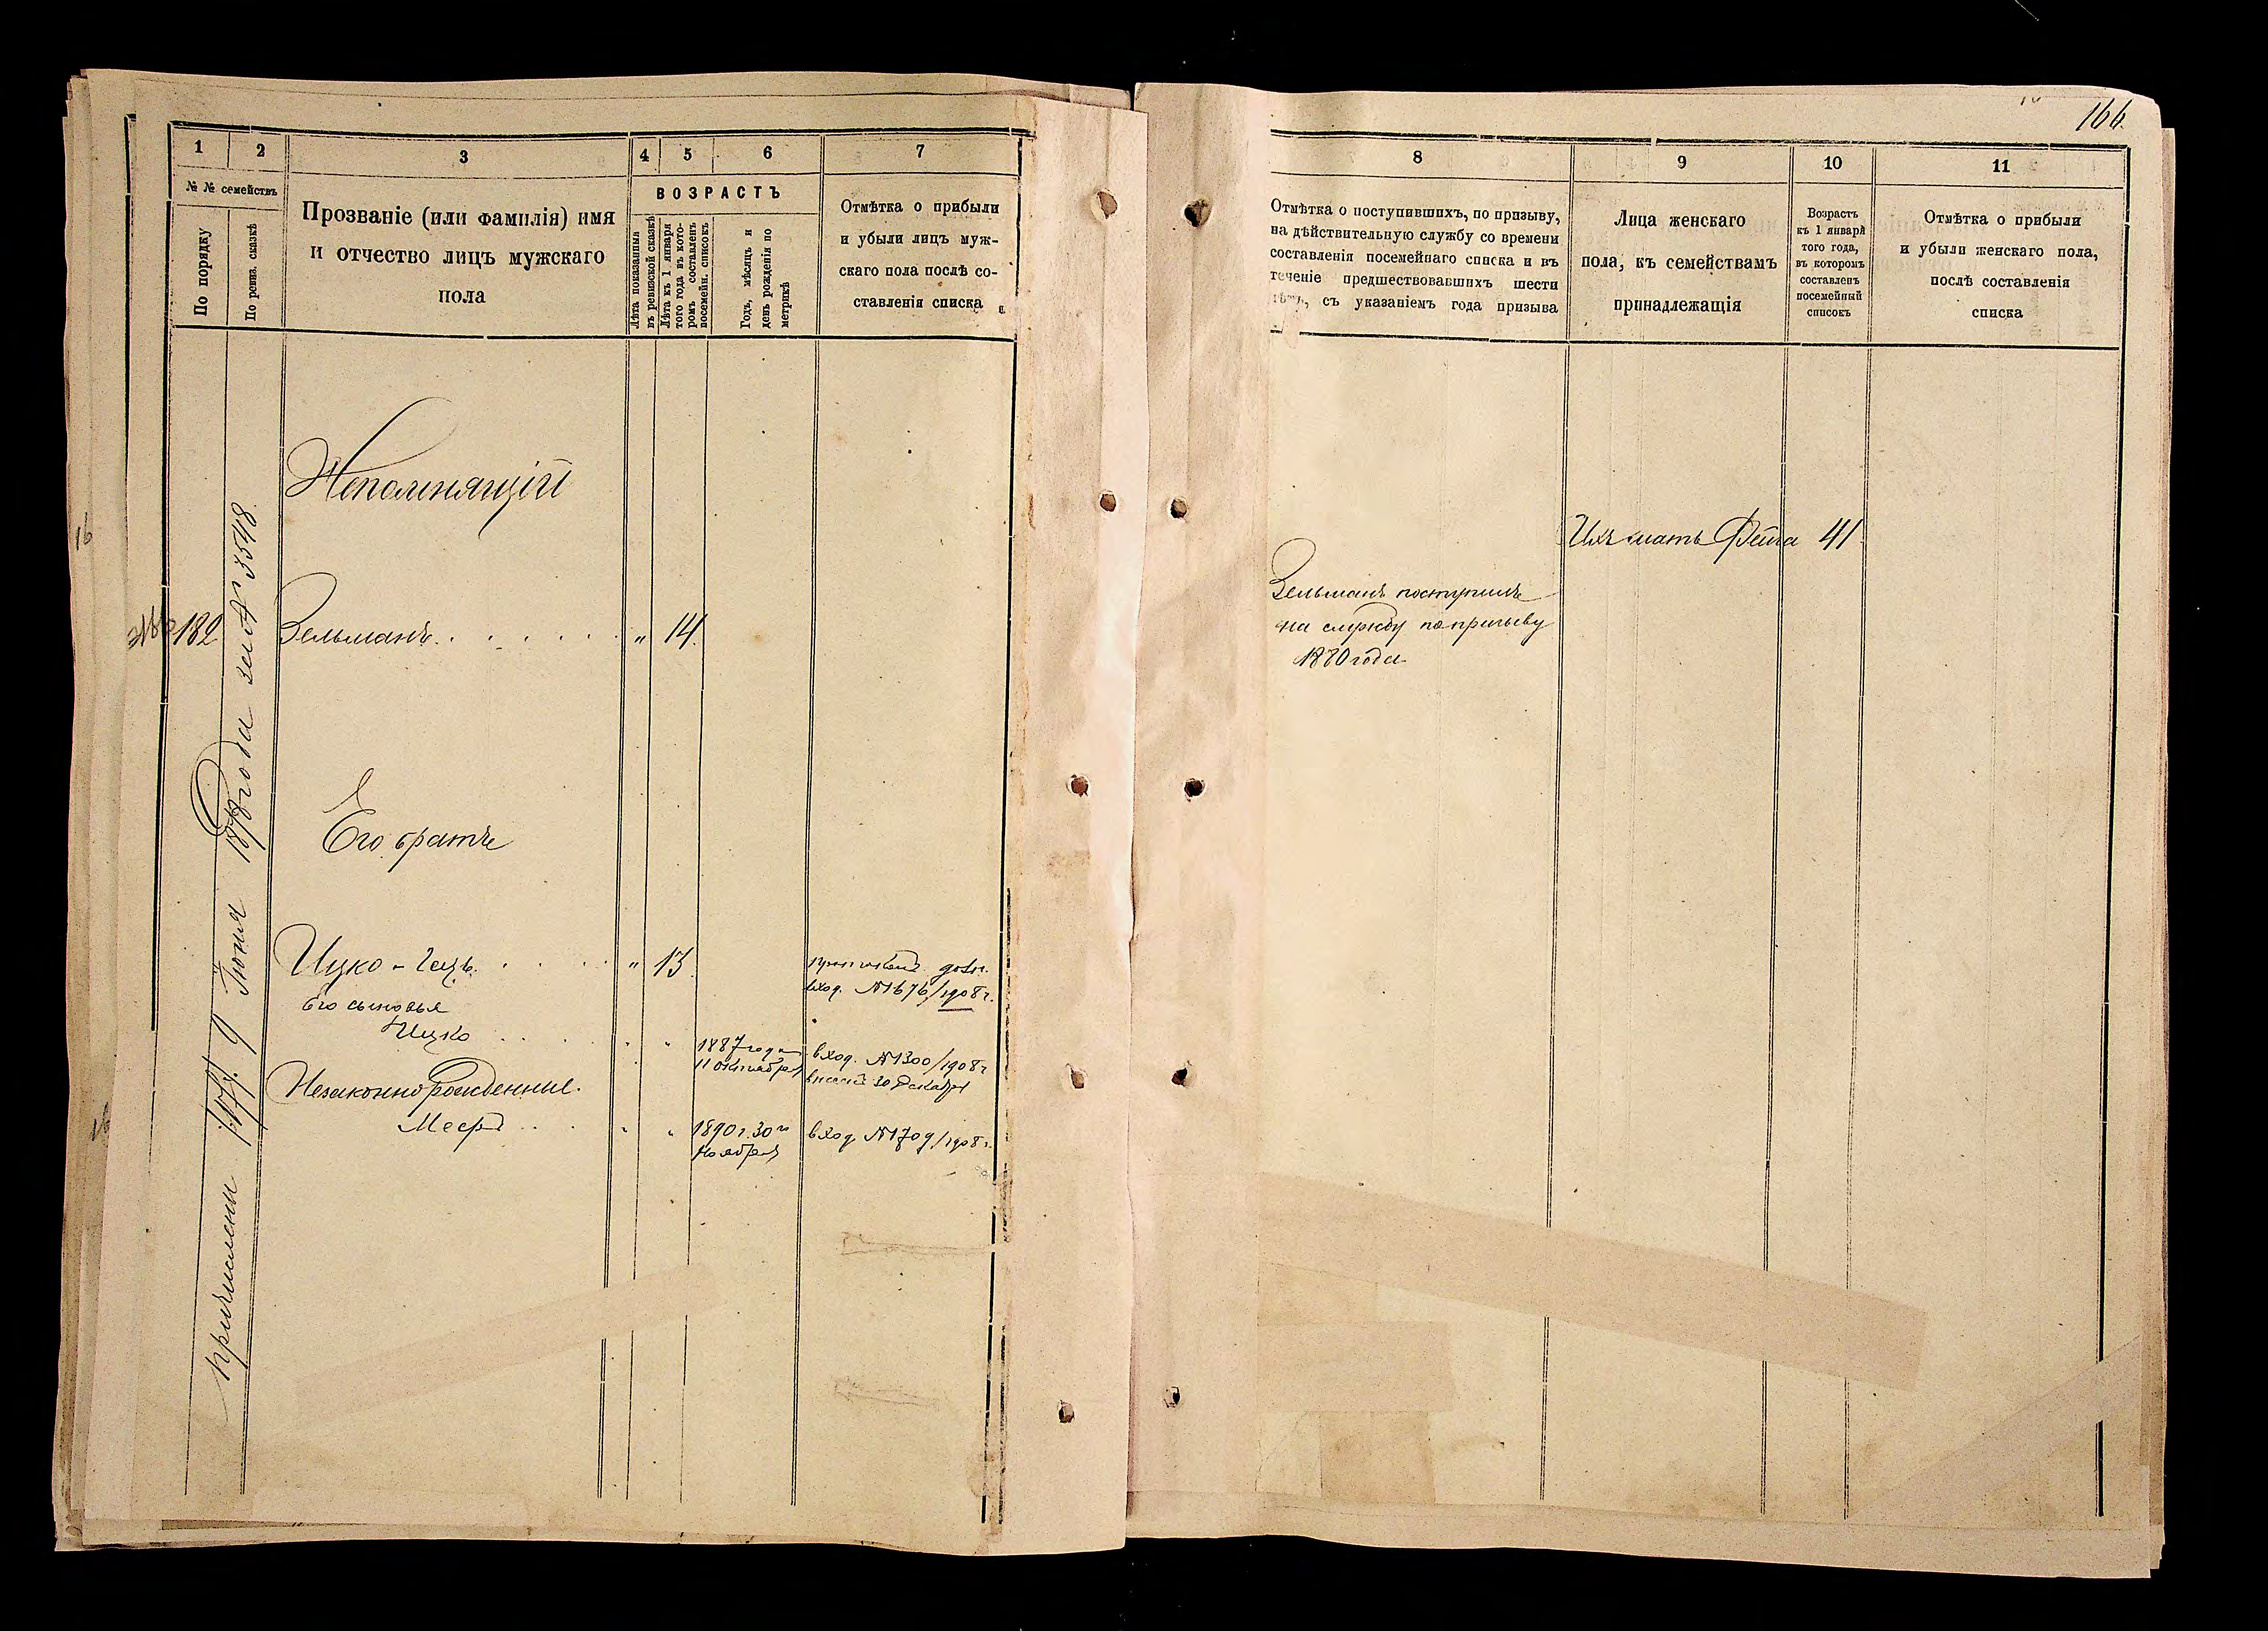 166
1
2
3
4
5
6
7
№ № семействъ
По порядку
По ревиз. сказкѣ
Прозваніе (или фамилія) имя
и отчество лицъ мужскаго
пола
ВОЗРАСТЪ
Лѣта показанныя
въ ревизской сказкѣ
Лѣта къ 1 января
того года въ кото-
ромъ составленъ
посемейн. списокъ
Годъ, мѣсяцъ и
день рожденія по
метрикѣ
Отмѣтка о прибыли
и убыли лицъ муж-
скаго пола послѣ со-
ставленія списка
Непомнящій
182
Зельманъ
" 14.
Его братъ
Ицко - Гецъ.
" 13.
вход. № 1676/1908 г.
Его сыновья
Ицко
1887 года
11 октября
вход. № 1300/1908 г
30 декабря
Незаконнорожденные.
Меер
1890 г. 30го
ноября
вход № 1709/1908 г.
причислены 1877. 9 Іюня года за № 3548.
8
9
10
11
Отмѣтка о поступившихъ, по призыву,
на дѣйствительную службу со времени
составленія посемейнаго списка и въ
теченіе предшествовавшихъ шести
лѣтъ, съ указаніемъ года призыва
Лица женскаго
пола, къ семействамъ
принадлежащія
Возрастъ
къ 1 января
того года,
въ которомъ
составленъ
посемейный
списокъ
Отмѣтка о прибыли
и убыли женскаго пола,
послѣ составленія
списка
Ихъ мать Фейга 41
Зельманъ поступилъ
на службу по призыву
1880 года